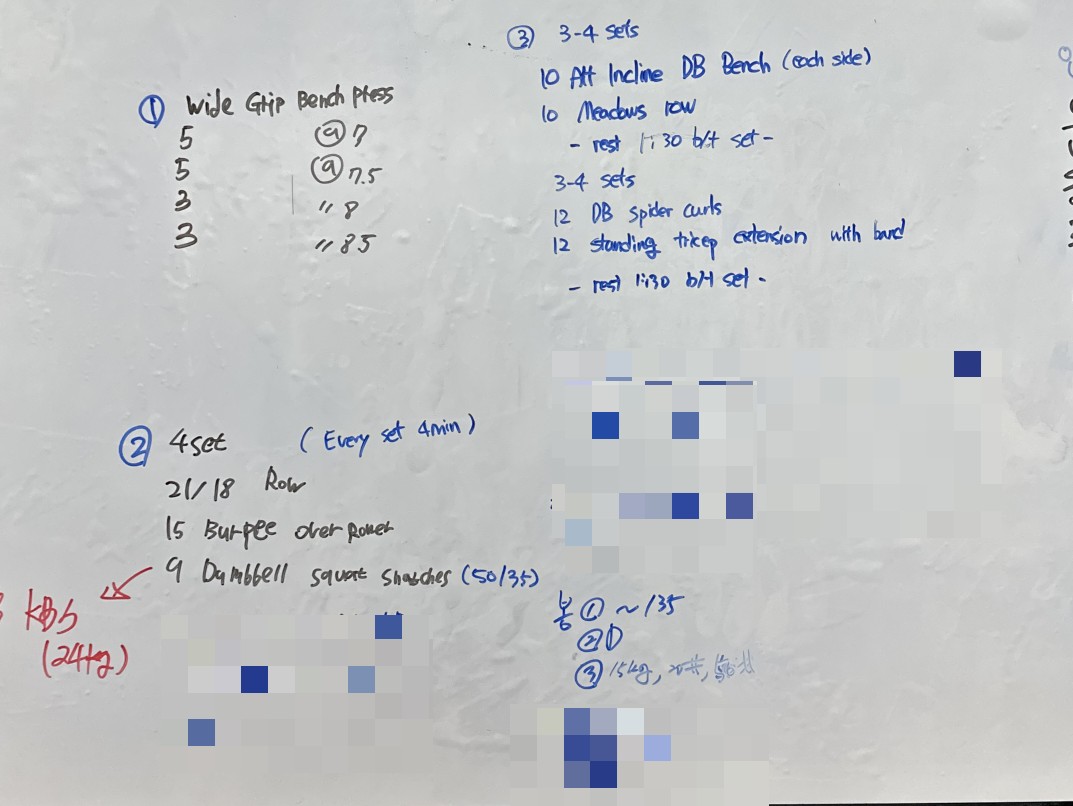 ① Wide Grip Bench Press
5 @ 7
5 @ 7.5
3 〃 8
3 〃 8.5
② 4set (Every set 4min)
21/18 Row
15 Burpee over Rower
9 Dumbbell squat snatches (50/35)
KBS
(24kg)
③ 3-4 sets
10 Alt Incline DB Bench (each side)
10 Meadows row
- rest 1:30 b/t set -
3-4 sets
12 DB spider curls
12 standing tricep extension with band
- rest 1:30 b/t set -
봉 ① ~135
②
③ 15kg, 20#,